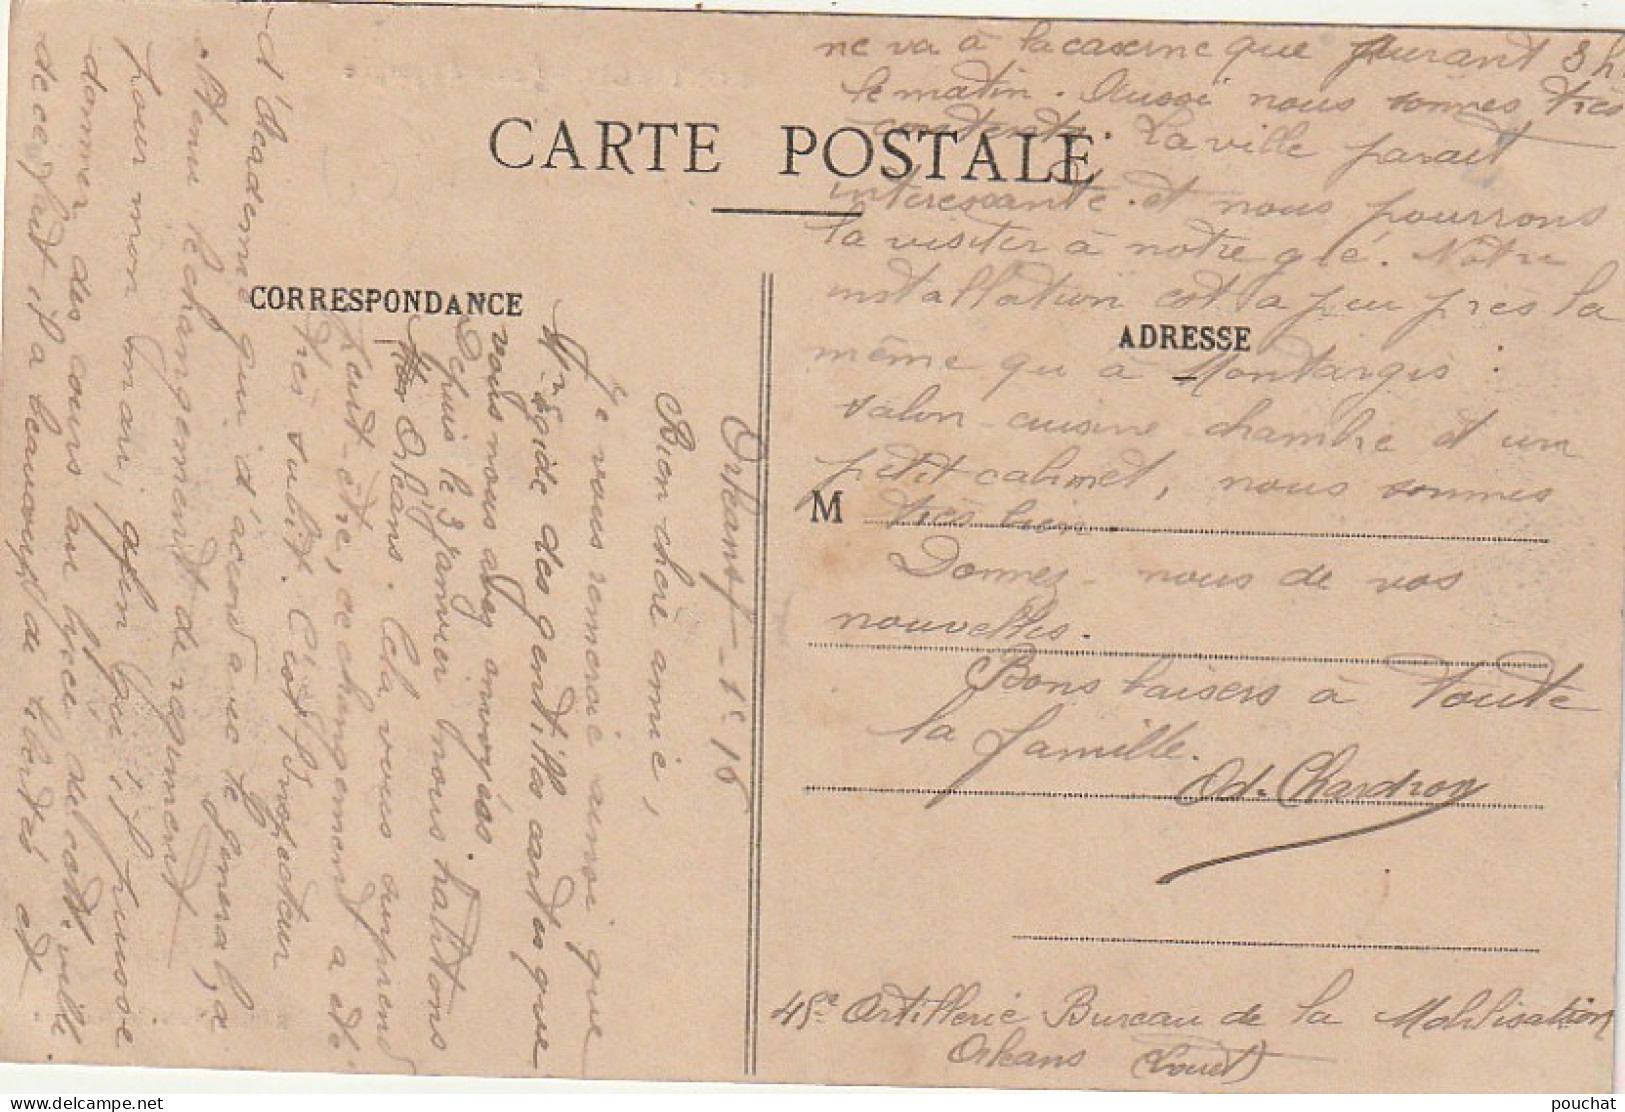 CARTE POSTALE
CORRESPONDANCE
ADRESSE
M
Orléans, 1e 16
Bien chère amie,
Je vous remercie ainsi que
Mr Egide des gentilles cartes que
vous nous avez envoyées.
Depuis le 3 janvier nous habitons
Orléans. Cela vous surprend
peut-être, ce changement a été
très subit. C'est l'Inspecteur
d'Académie qui d'accord avec le général, a
obtenu le changement de régiment
pour mon mari, afin qu'il puisse
donner des cours au lycée de cette ville
de ce fait il a beaucoup de liberté et
ne va à la caserne que durant 3 h
le matin. Aussi nous sommes très
contents. La ville parait
intéressante et nous pourrons
la visiter à notre gré. Notre
installation est à peu près la
même qu'à Montargis :
salon - cuisine - chambre et un
petit cabinet, nous sommes
très bien.
Donnez-nous de vos
nouvelles.
Bons baisers à toute
la famille.
Od. Chardron
45e Artillerie Bureau de la Mobilisation
Orléans (Loiret)
pouchat